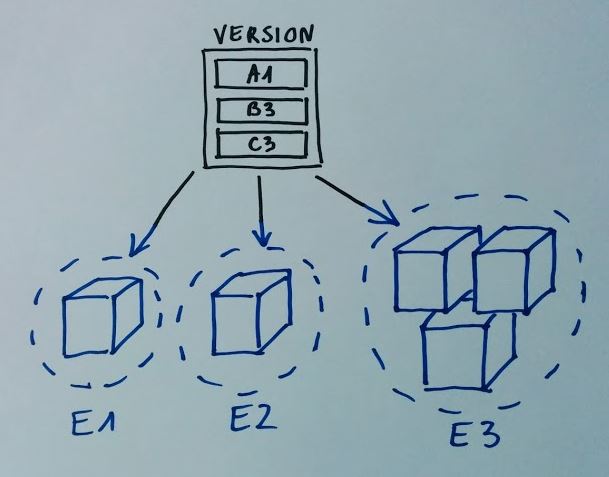 VERSION
A1
B3
C3
E1
E2
E3